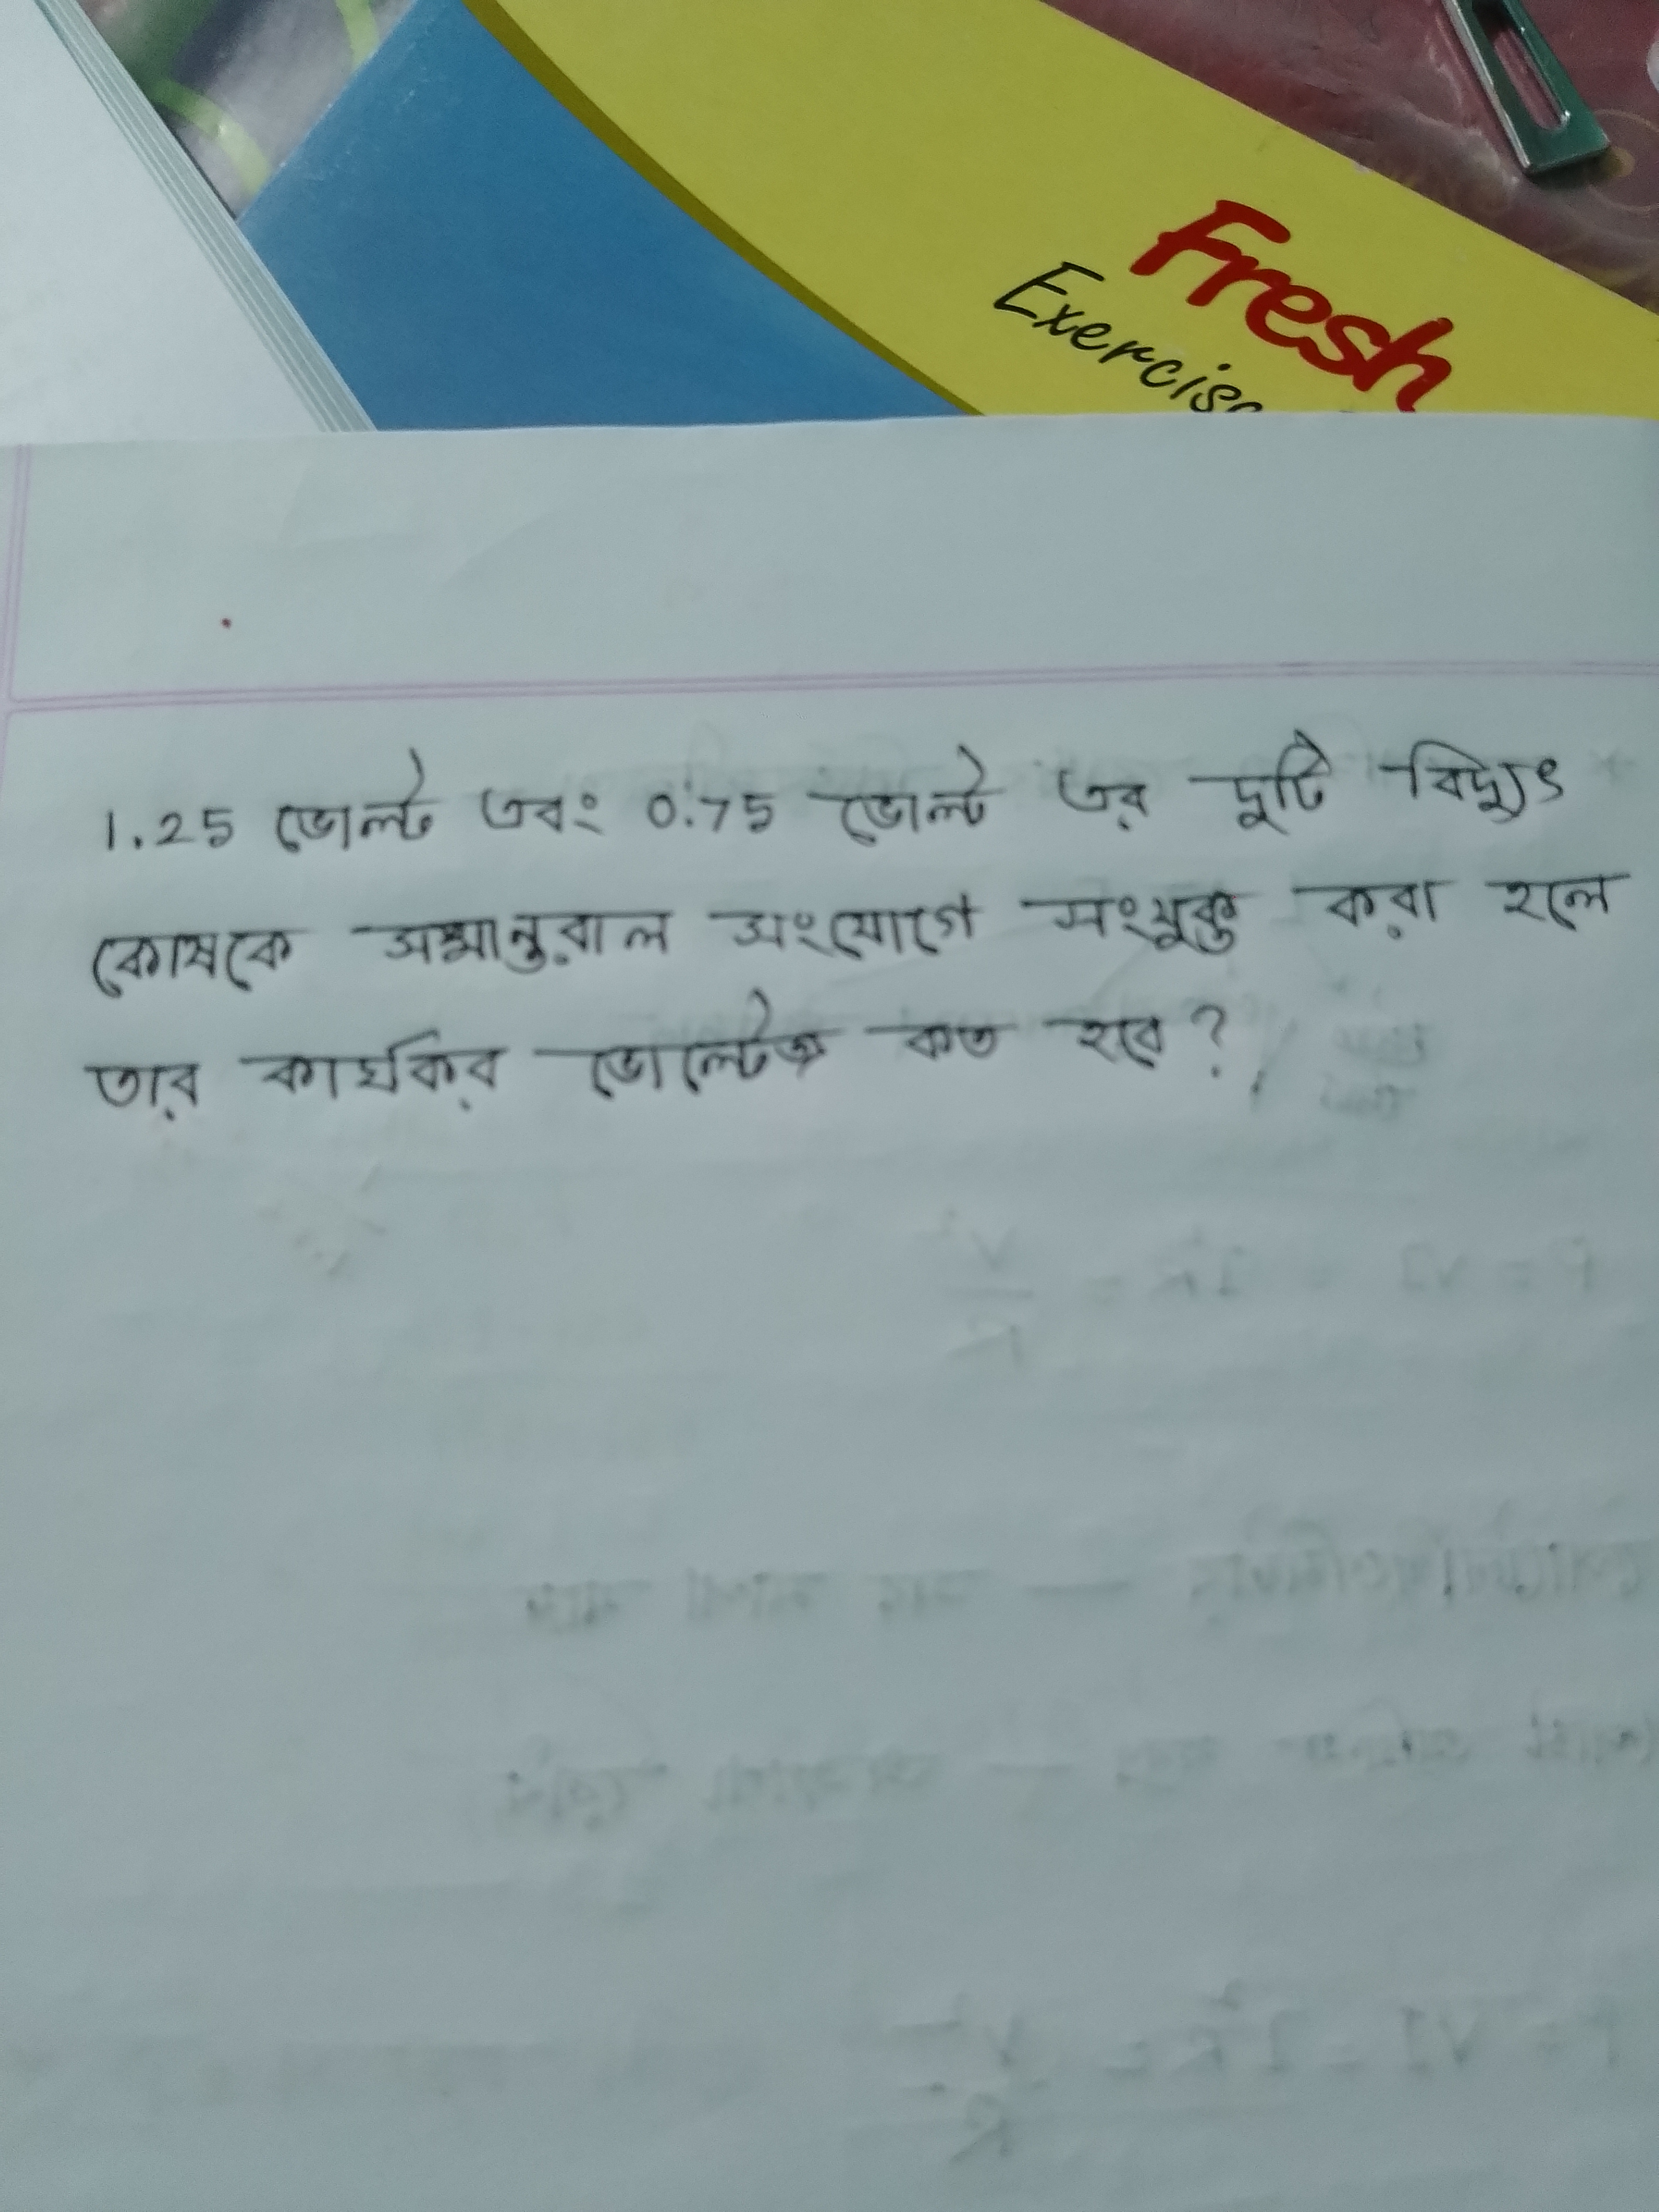 Fresh
Exercise
1.25 ভোল্ট এবং 0.75 ভোল্ট এর দুটি বিদ্যুৎ
কোষকে সমান্তরাল সংযোগে সংযুক্ত করা হলে
তার কার্যকর ভোল্টেজ কত হবে?